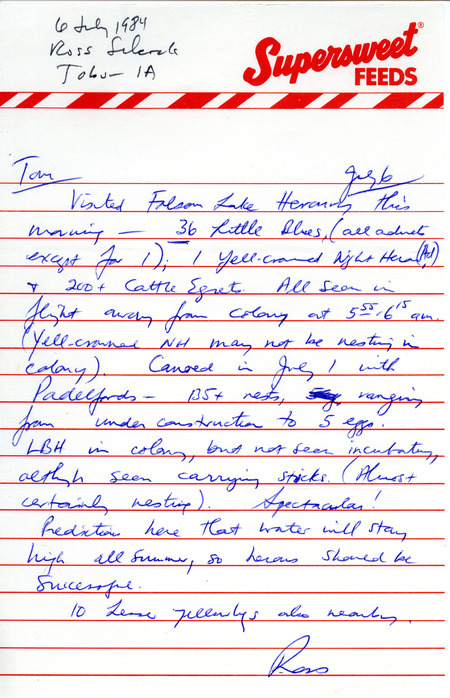 6 July 1984
Ross Silcock
Tabor IA
Supersweet®
FEEDS
Tom July 6
Visited Folsom Lake Heronry this
morning — 36 Little Blues, (all adults
except for 1); 1 Yell-crowned Night Heron (Ad),
+ 200+ Cattle Egrets. All seen in
flight away from colony at 5 55 - 6 15 am.
(Yell-crowned NH may not be nesting in
colony). Canoed in July 1 with
Padelfords — 135+ nests, ranging
from under construction to 5 eggs.
LBH in colony, but not seen incubating,
although seen carrying sticks. (Almost
certainly nesting). Spectacular!
Prediction here that water will stay
high all summer, so herons should be
successful.
10 Lesser Yellowlegs also nearby.
Ross